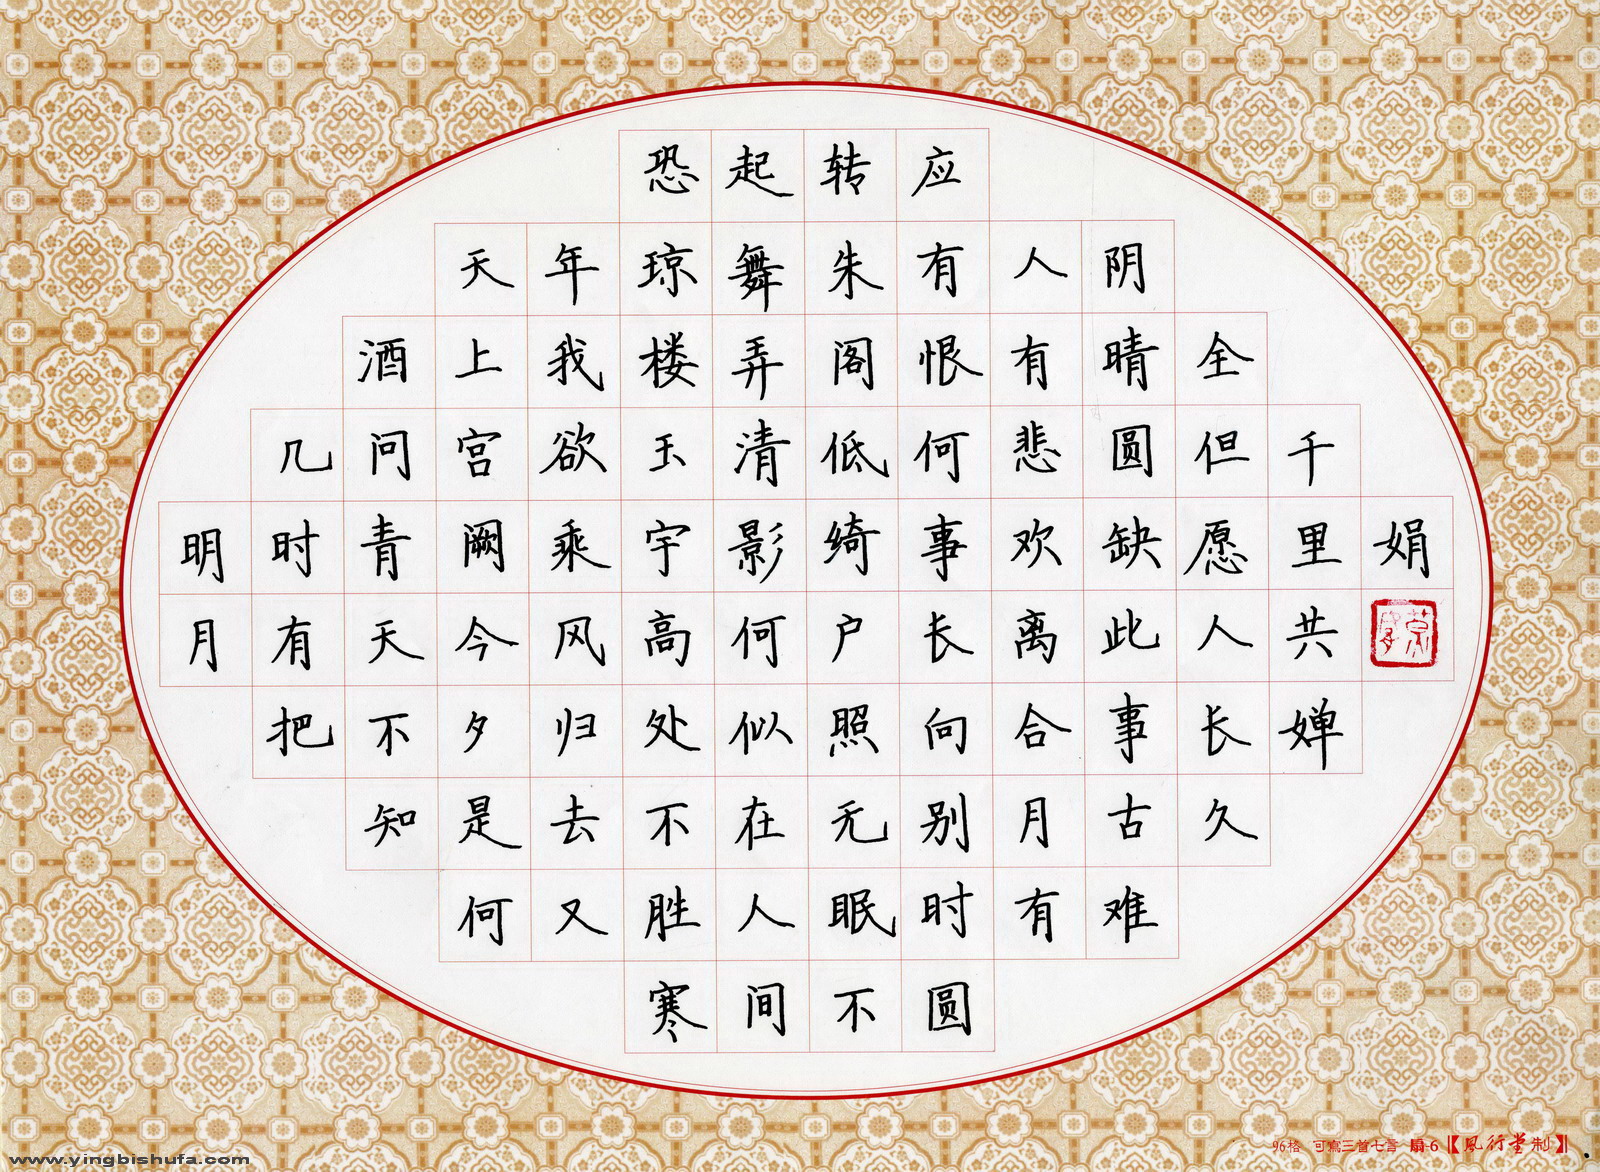 明月
几时有把
酒问青天不知
天上宫阙今夕是何
年我欲乘风归去又
恐琼楼玉宇高处不胜寒
起舞弄清影何似在人间
转朱阁低绮户照无眠不
应有恨何事长向别时圆
人有悲欢离合月有
阴晴圆缺此事古难
全但愿人长久
千里共婵
娟
96格 可寫三首七言 扇-6【風行堂制】
www.yingbishufa.com